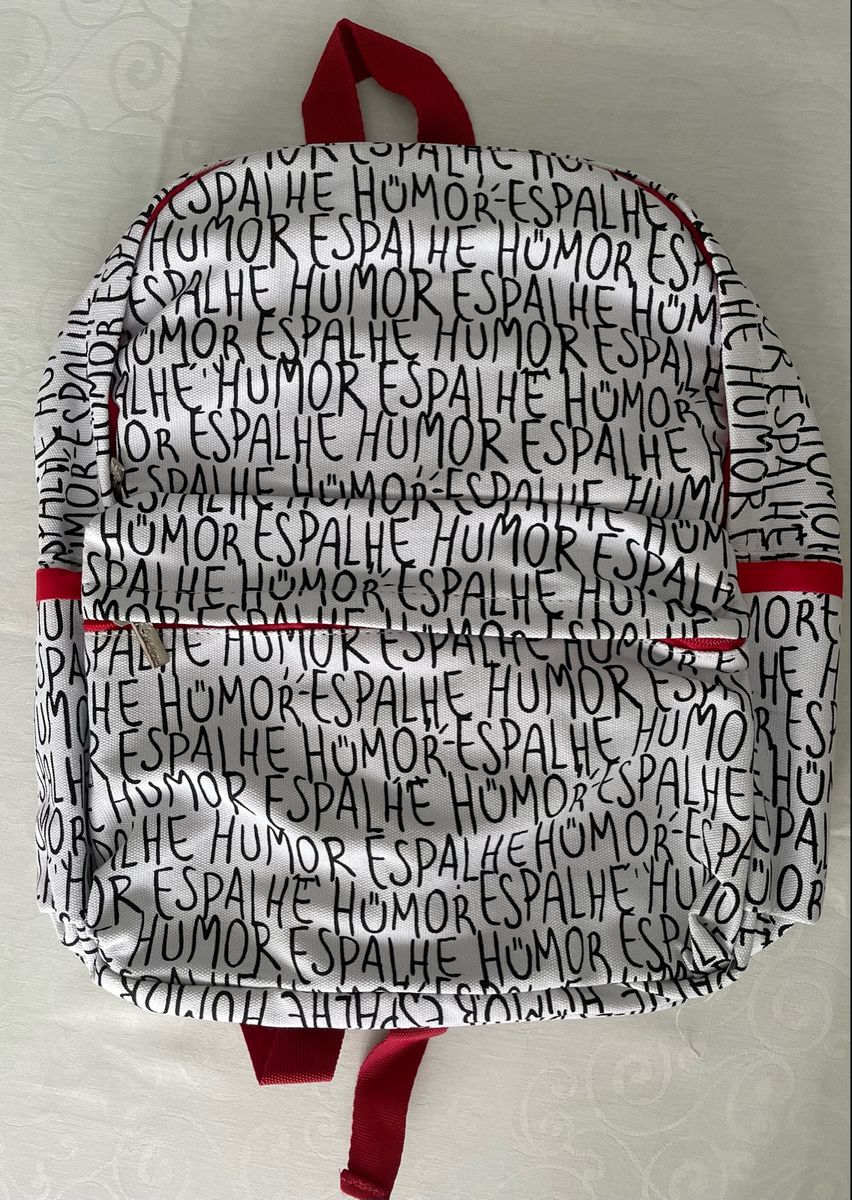 HUMOR ESPALHE HU
ESPALHE HÜMOR ESPALHE
HUMOR ESPALHE HÜMOR ESP
ESPALHE HUMOR ESPALHE HÜM
HUMOR ESPALHE HUMOR ESPAL
ALHE HUMOR ESPALHE HÜMOR
MOR ESPALHE HUMOR ESPALHE
ESPALHE HÜMOR ESPALHE HUM
HÜMOR ESPALHE HUMOR ESPALHE HÜM
SPALHE HÜMOR ESPALHE HUMOR ESPALH
MOR ESPALHE HUMOR ESPALHE
PALHE HUMOR ESPALHE HUMOR E
HE HÜMOR ESPALHE HUMOR ESPA
R ESPALHE HÜMOR ESPALHE HUMO
HUMOR ESPALHE HÜMOR ESPALHE
ALHE HUMOR ESPALHE HÜMOR ES
OR ESPALHE HÜMOR ESPALHE HUMO
HUMOR ESPALHE HÜMOR ESPAL
HUMOR ESPALHE HUMOR ESPALHE HUMOR